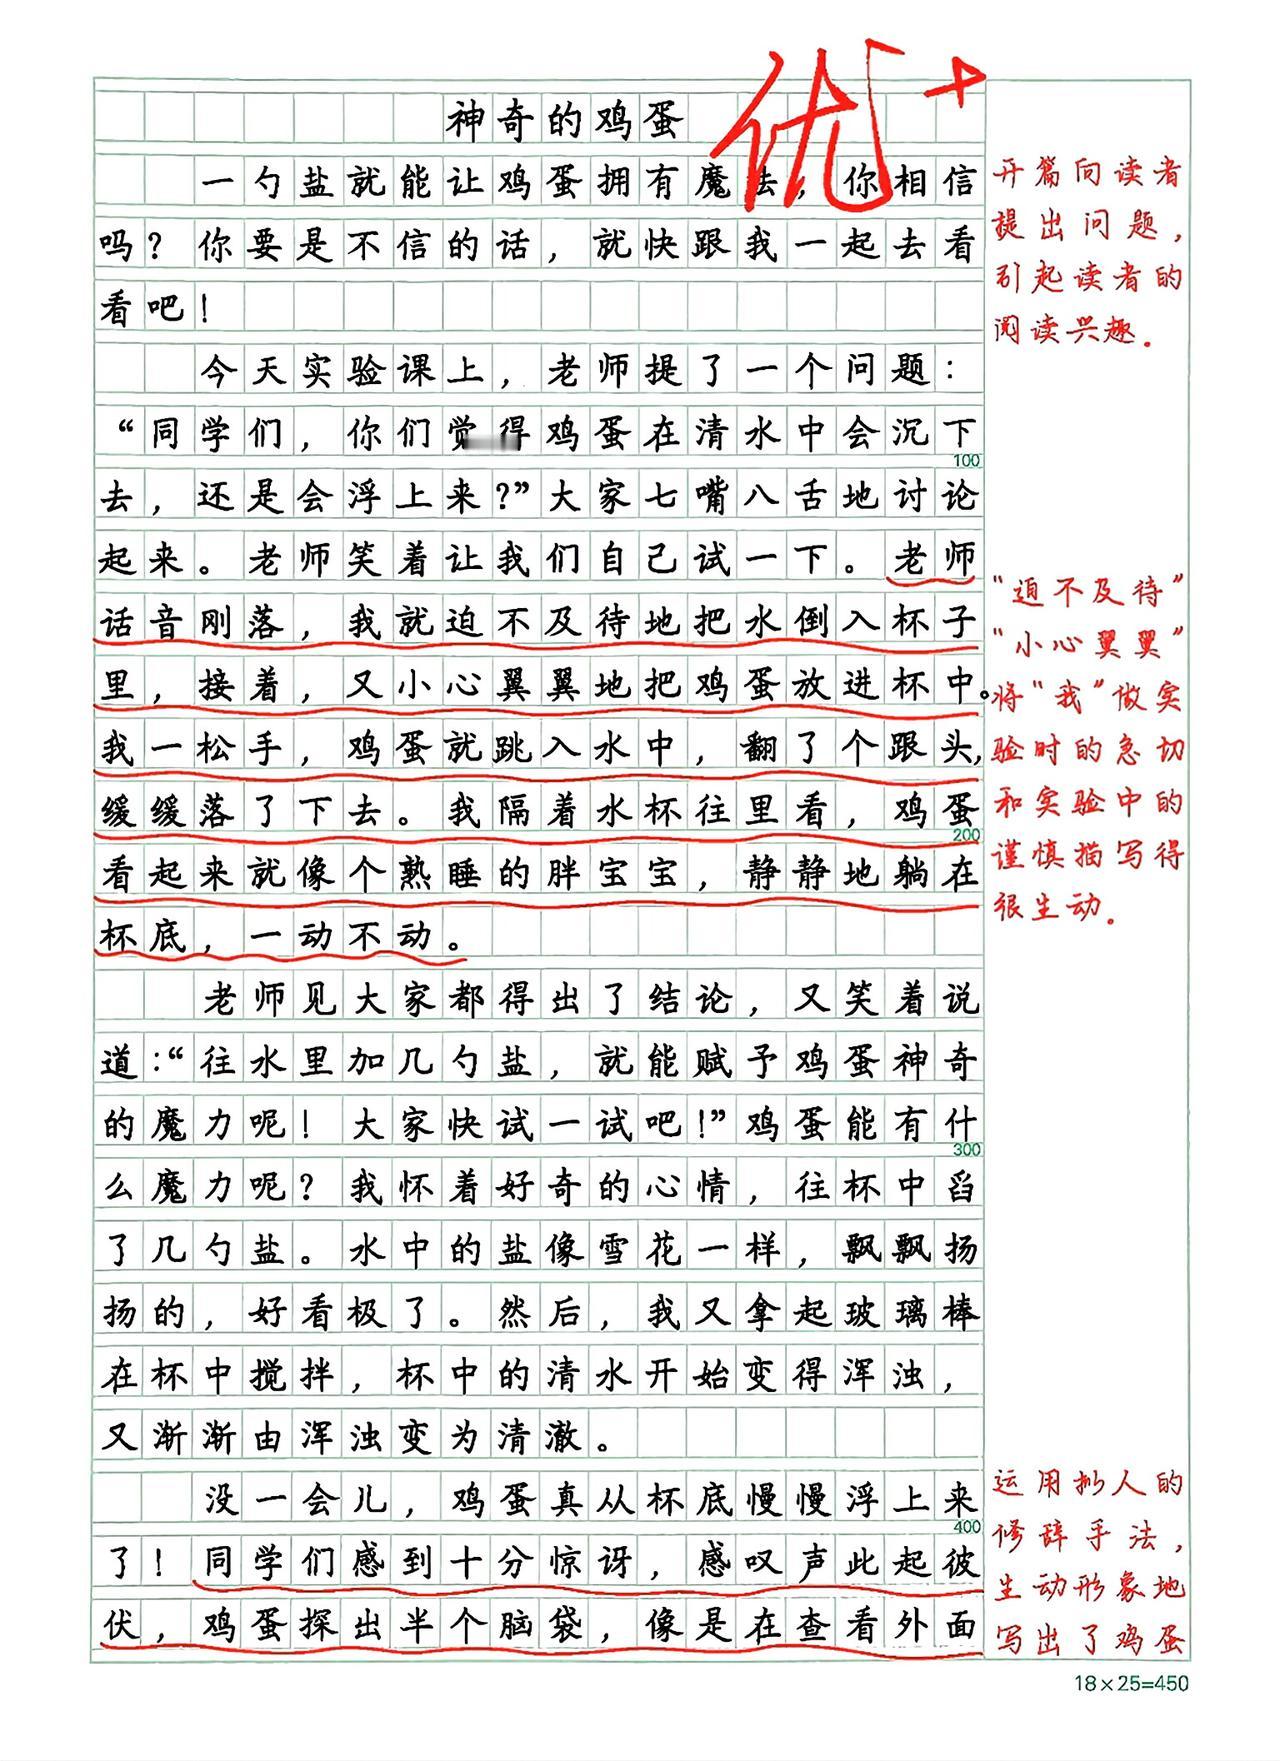 神奇的鸡蛋
优+
一勺盐就能让鸡蛋拥有魔法，你相信
吗？你要是不信的话，就快跟我一起去看
看吧！
今天实验课上，老师提了一个问题：
“同学们，你们觉得鸡蛋在清水中会沉下
100
去，还是会浮上来？”大家七嘴八舌地讨论
起来。老师笑着让我们自己试一下。老师
话音刚落，我就迫不及待地把水倒入杯子
里，接着，又小心翼翼地把鸡蛋放进杯中。
我一松手，鸡蛋就跳入水中，翻了个跟头，
缓缓落了下去。我隔着水杯往里看，鸡蛋
200
看起来就像个熟睡的胖宝宝，静静地躺在
杯底，一动不动。
老师见大家都得出了结论，又笑着说
道：“往水里加几勺盐，就能赋予鸡蛋神奇
的魔力呢！大家快试一试吧！”鸡蛋能有什
300
么魔力呢？我怀着好奇的心情，往杯中舀
了几勺盐。水中的盐像雪花一样，飘飘扬
扬的，好看极了。然后，我又拿起玻璃棒
在杯中搅拌，杯中的清水开始变得浑浊，
又渐渐由浑浊变为清澈。
没一会儿，鸡蛋真从杯底慢慢浮上来
400
了！同学们感到十分惊讶，感叹声此起彼
伏，鸡蛋探出半个脑袋，像是在查看外面
开篇向读者
提出问题，
引起读者的
阅读兴趣．
“迫不及待”
“小心翼翼”
将“我”做实
验时的急切
和实验中的
谨慎描写得
很生动．
运用拟人的
修辞手法，
生动形象地
写出了鸡蛋
18×25=450